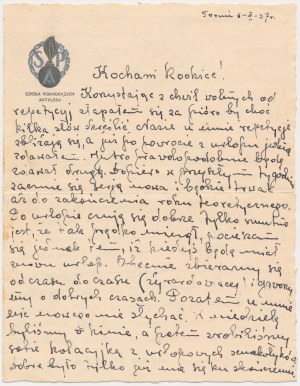 Toruń 8-II-37r.
SZKOŁA PODCHORĄŻYCH
ARTYLERII
Kochani Rodzice!
Korzystając z chwil wolnych od
repetycji złapałem się za pióro by choć
kilka słów skreślić. Czasu u mnie repetycje
zbliżają się, a już po powrocie z urlopu jedną
zdawałem. Jutro prawdopodobnie będę
zdawał drugą. Dopiero w przyszłym tygodniu
zacznie się serja nowa i będzie trwać
aż do zakończenia roku teoretycznego.
Po urlopie czuję się dobrze tylko smutno
jest, że tak prędko minął, pocieszam
się jednak tem, iż kiedyś będę miał
znowu urlop. Obecnie zbieramy się
od czasu do czasu (żyrardowiacy) i gwarzymy
o dobrych czasach. Pozatem u mnie
nic nowego nie słychać. W niedzielę
byliśmy w kinie, a potem zrobiliśmy
sobie kolacyjkę z urlopowych smakołyków
dobre było tylko już ma się ku skończeniu